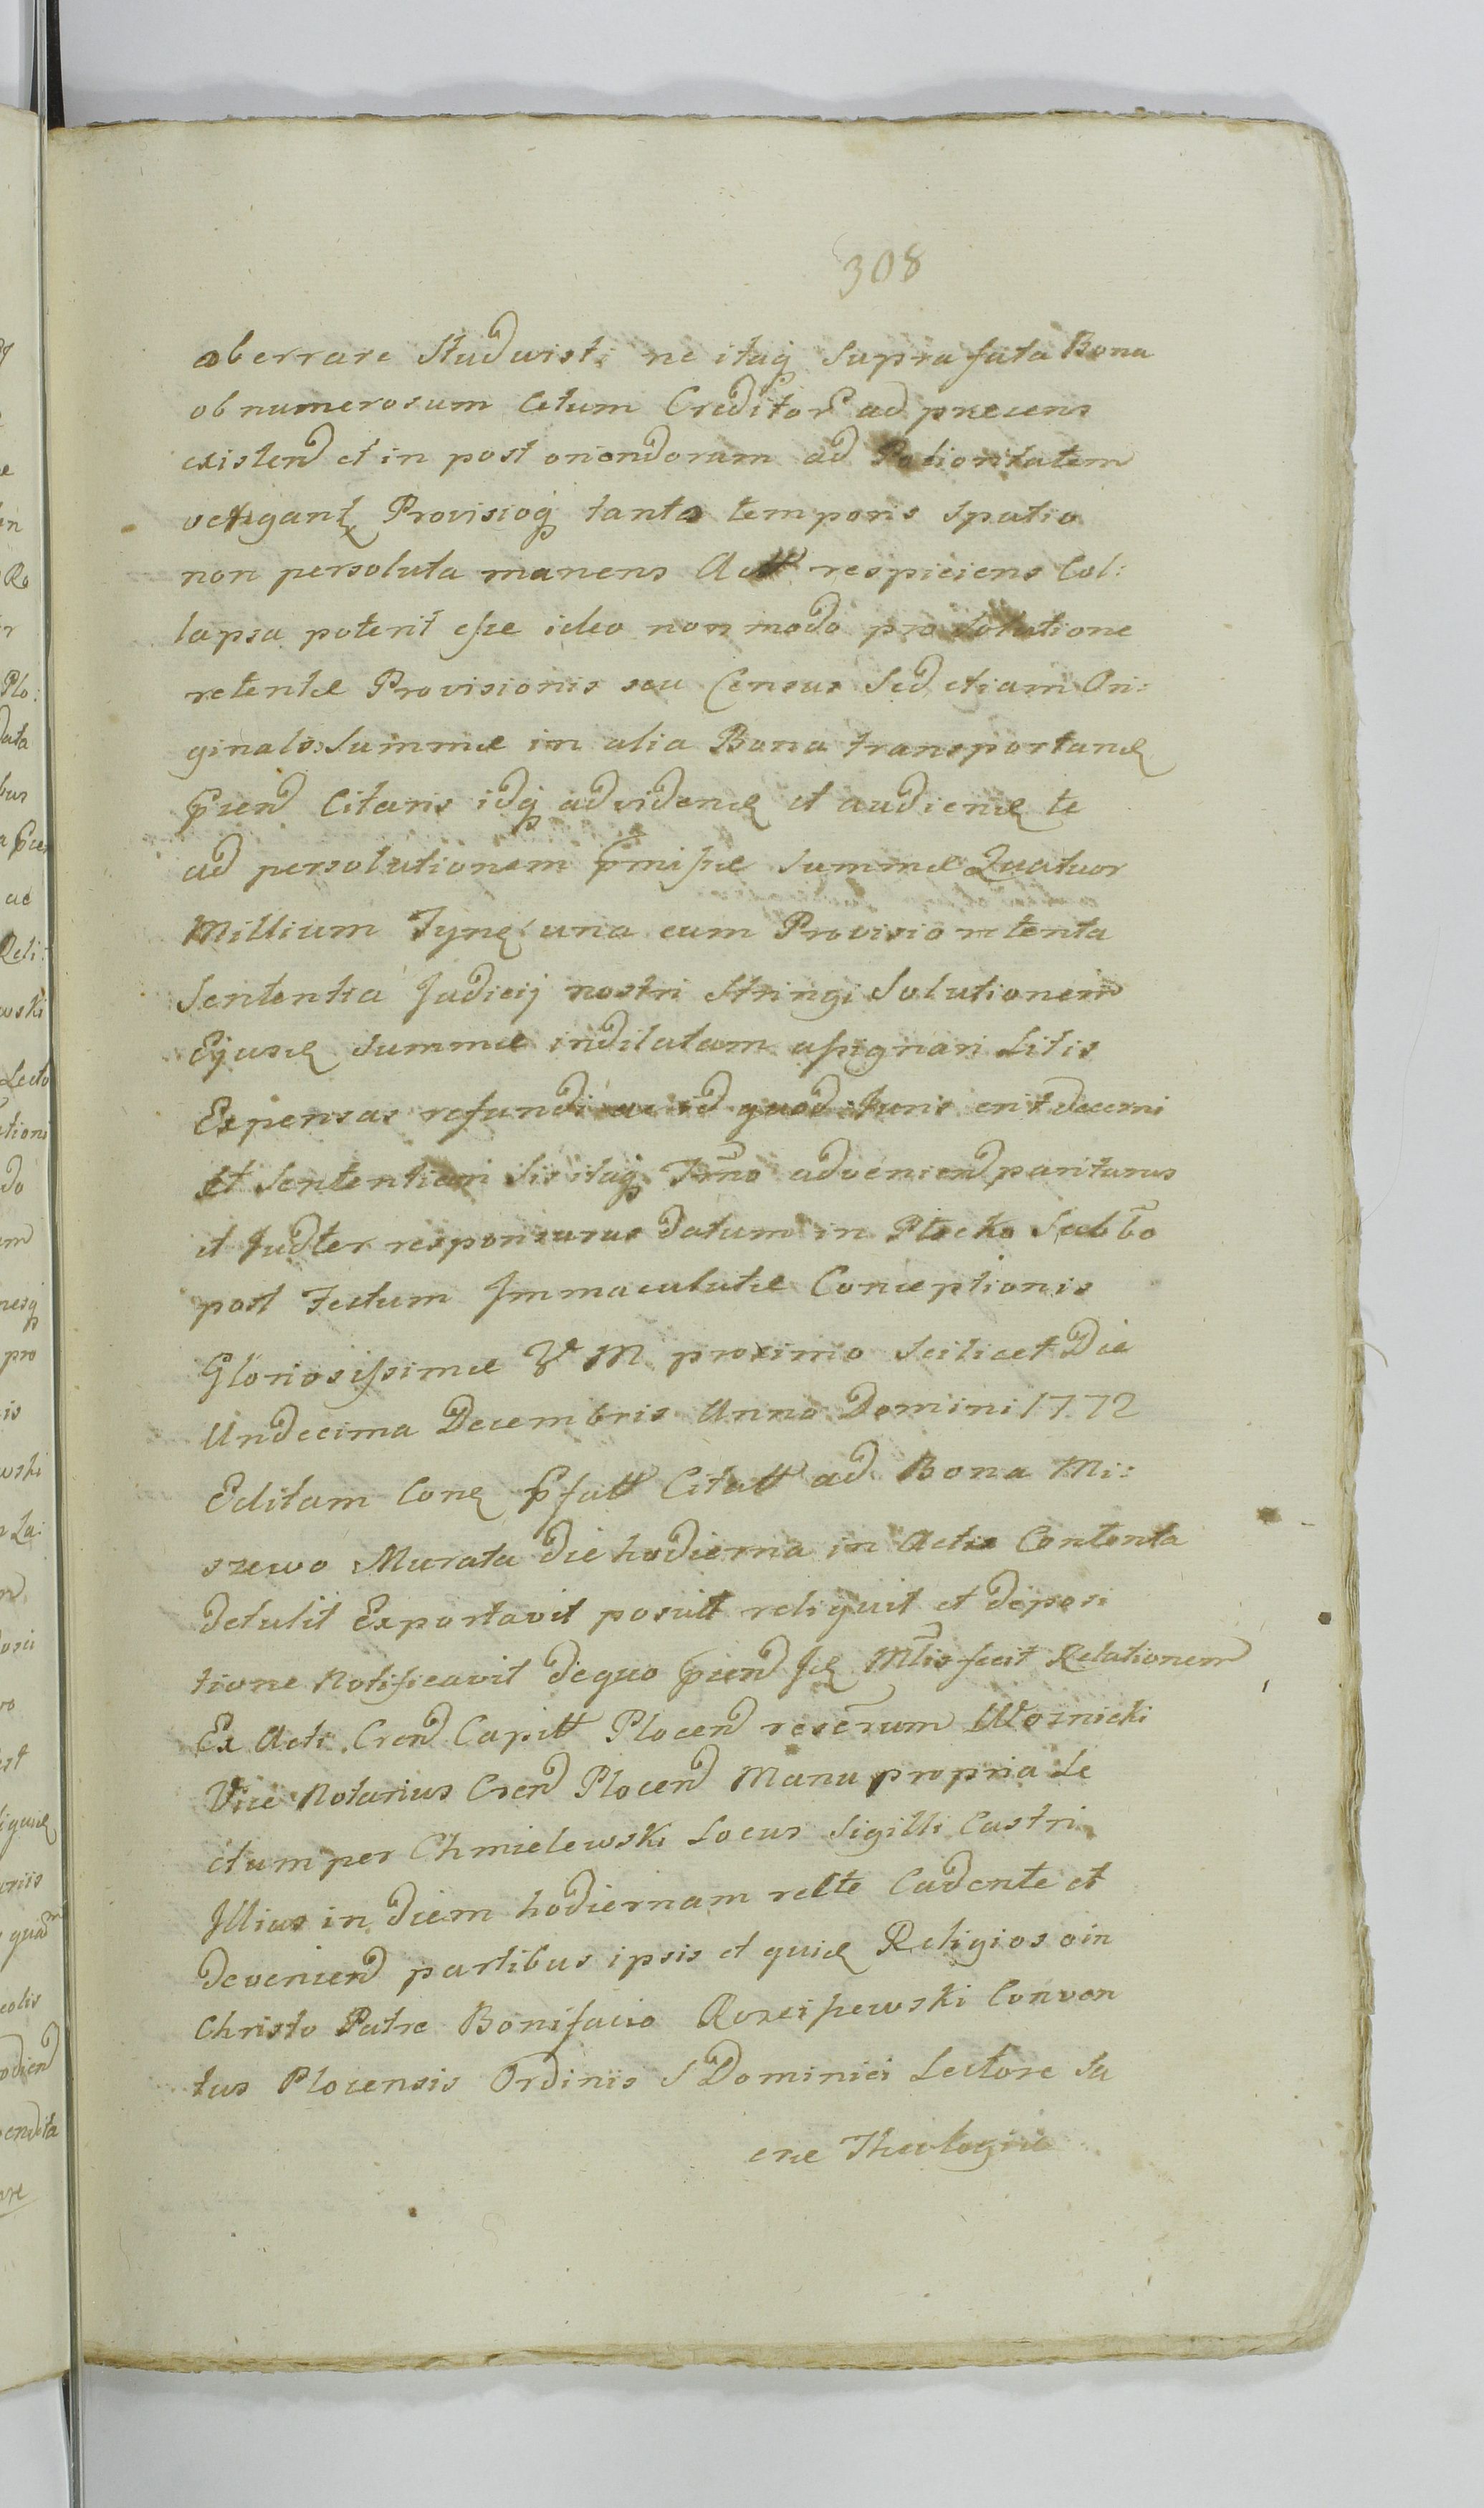 308
aberrare Studuisti ne itaq Supra fata Bona
ob numerosum Cetum Creditor ad præcens
existend et in post oriondorum ad Potioritatem
vettigant Provisioq tanto temporis spatio
non persoluta manens Actt respiciens Col:
lapsa poterit esse ideo non modo pro Solutione
retentæ Provisionis seu Census Sed etiam Ori:
ginalis Summæ in alia Bona transportand
pñend Citaris idq ad videnđ et audienđ te
ad persolutionem pmissæ Summæ Quatuor
Millium Tynf una cum Provision tenta
Sententia Judicij nostri Stringi Solutionem
Ejusđ Summæ indilatam assignari Litis
Expensas refundi ac id quod Juris erit decerni
et Sententiari Sis itaq Trño advenienđ pariturus
et Judter responsurus Datum in Płocko Sabbo
post Festum Immaculatæ Conceptionis
Gloriosissimæ V M proximo Scilicet Die
Undecima Decembris Anno Domini 1772
Editam Conđ pfatt Citatt ad Bona Mi:
szewo Murata die hodierna in Actis Contenta
Detulit Exportavit posuit reliquit et deposi
tione Notificavit de quo pñend Jđ Mtlis fecit Relationem
Ex Acti Crend Capitt Plocend reserum Woznicki
Vice Notarius Crend Plocend Manu propria Le
ctum per Chmielewski Locus Sigilli Castri
Illius in diem hodiernam recte Cadente et
Deveniend partibus ipsis et quiđ Religios o in
Christo Patre Bonifacio Rosciszewski Conven
tus Plocensis Ordinis S Dominici Lectore Sa
cræ Theologiæ